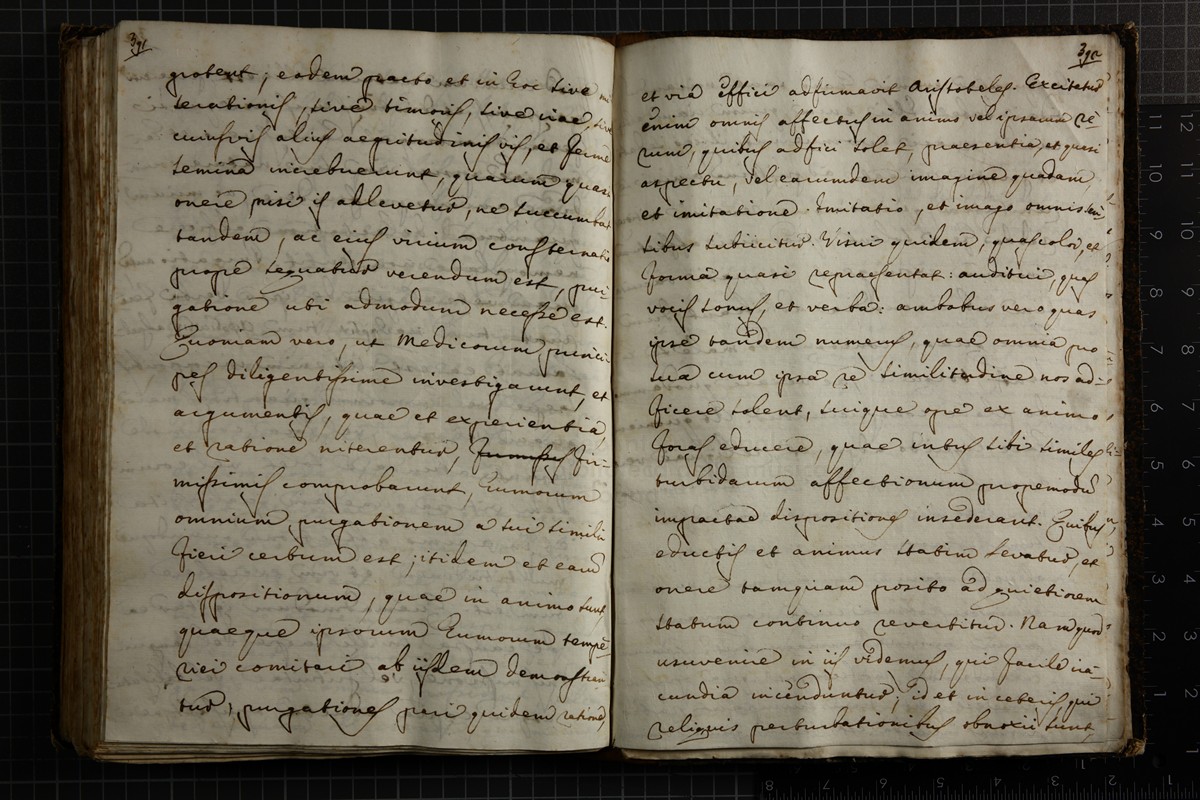 391
grotent; eodem pacto et in hoc sive mi
serationis, sive timoris, sive irae, sive
cuiusvis alius aegritudinis vis, et ferme
semina increbuerunt, quarum quasi
onere nisi is allevetur, ne succumbat
tandem, ac eius virium consternatio
prope sequatur verendum est, pur-
gatione ubi admodum necesse est.
Quoniam vero, ut Medicorum princi-
pes diligentissime investigarunt, et
argumentis, quae et experientia,
et ratione niterentur, fir-
missimis comprobarunt, humorum
omnium purgationem a sui simili
fieri certum est; itidem et earum
dispositionum, quae in animo sunt,
quaeque ipsorum humorum tempe
riei comitari ab iisdem demonstran
tur, purgationes pari quidem ratione,
392
et via effici adfirmavit Aristoteles. Excitatur
enim omnis affectus in animo vel ipsarum re-
rum, quibus adfici solet, praesentia, et quasi
aspectu, vel earumdem imagine quadam,
et imitatione. Imitatio, et imago omnis sen
sibus subiicitur. Visui quidem, quas color, et
forma quasi repraesentat: auditui, quas
vocis sonus, et verba: ambabus vero quas
ipse tandem numerus, quae omnia pro
sua cum ipsa re similitudine nos adi-
ficere solent, suique ope ex animo
foras educere, quae intus sibi similes
turbidarum affectionum propemodum
impactae dispositiones insederant. Quibus
eductis et animus statim levatur, et
onere tamquam posito ad quietiorem
statum continuo revertitur. Nam quod
usuvenire in iis videmus, qui facile ira-
cundia incenduntur, id et in ceteris qui
reliquis perturbationibus obnoxii sunt,